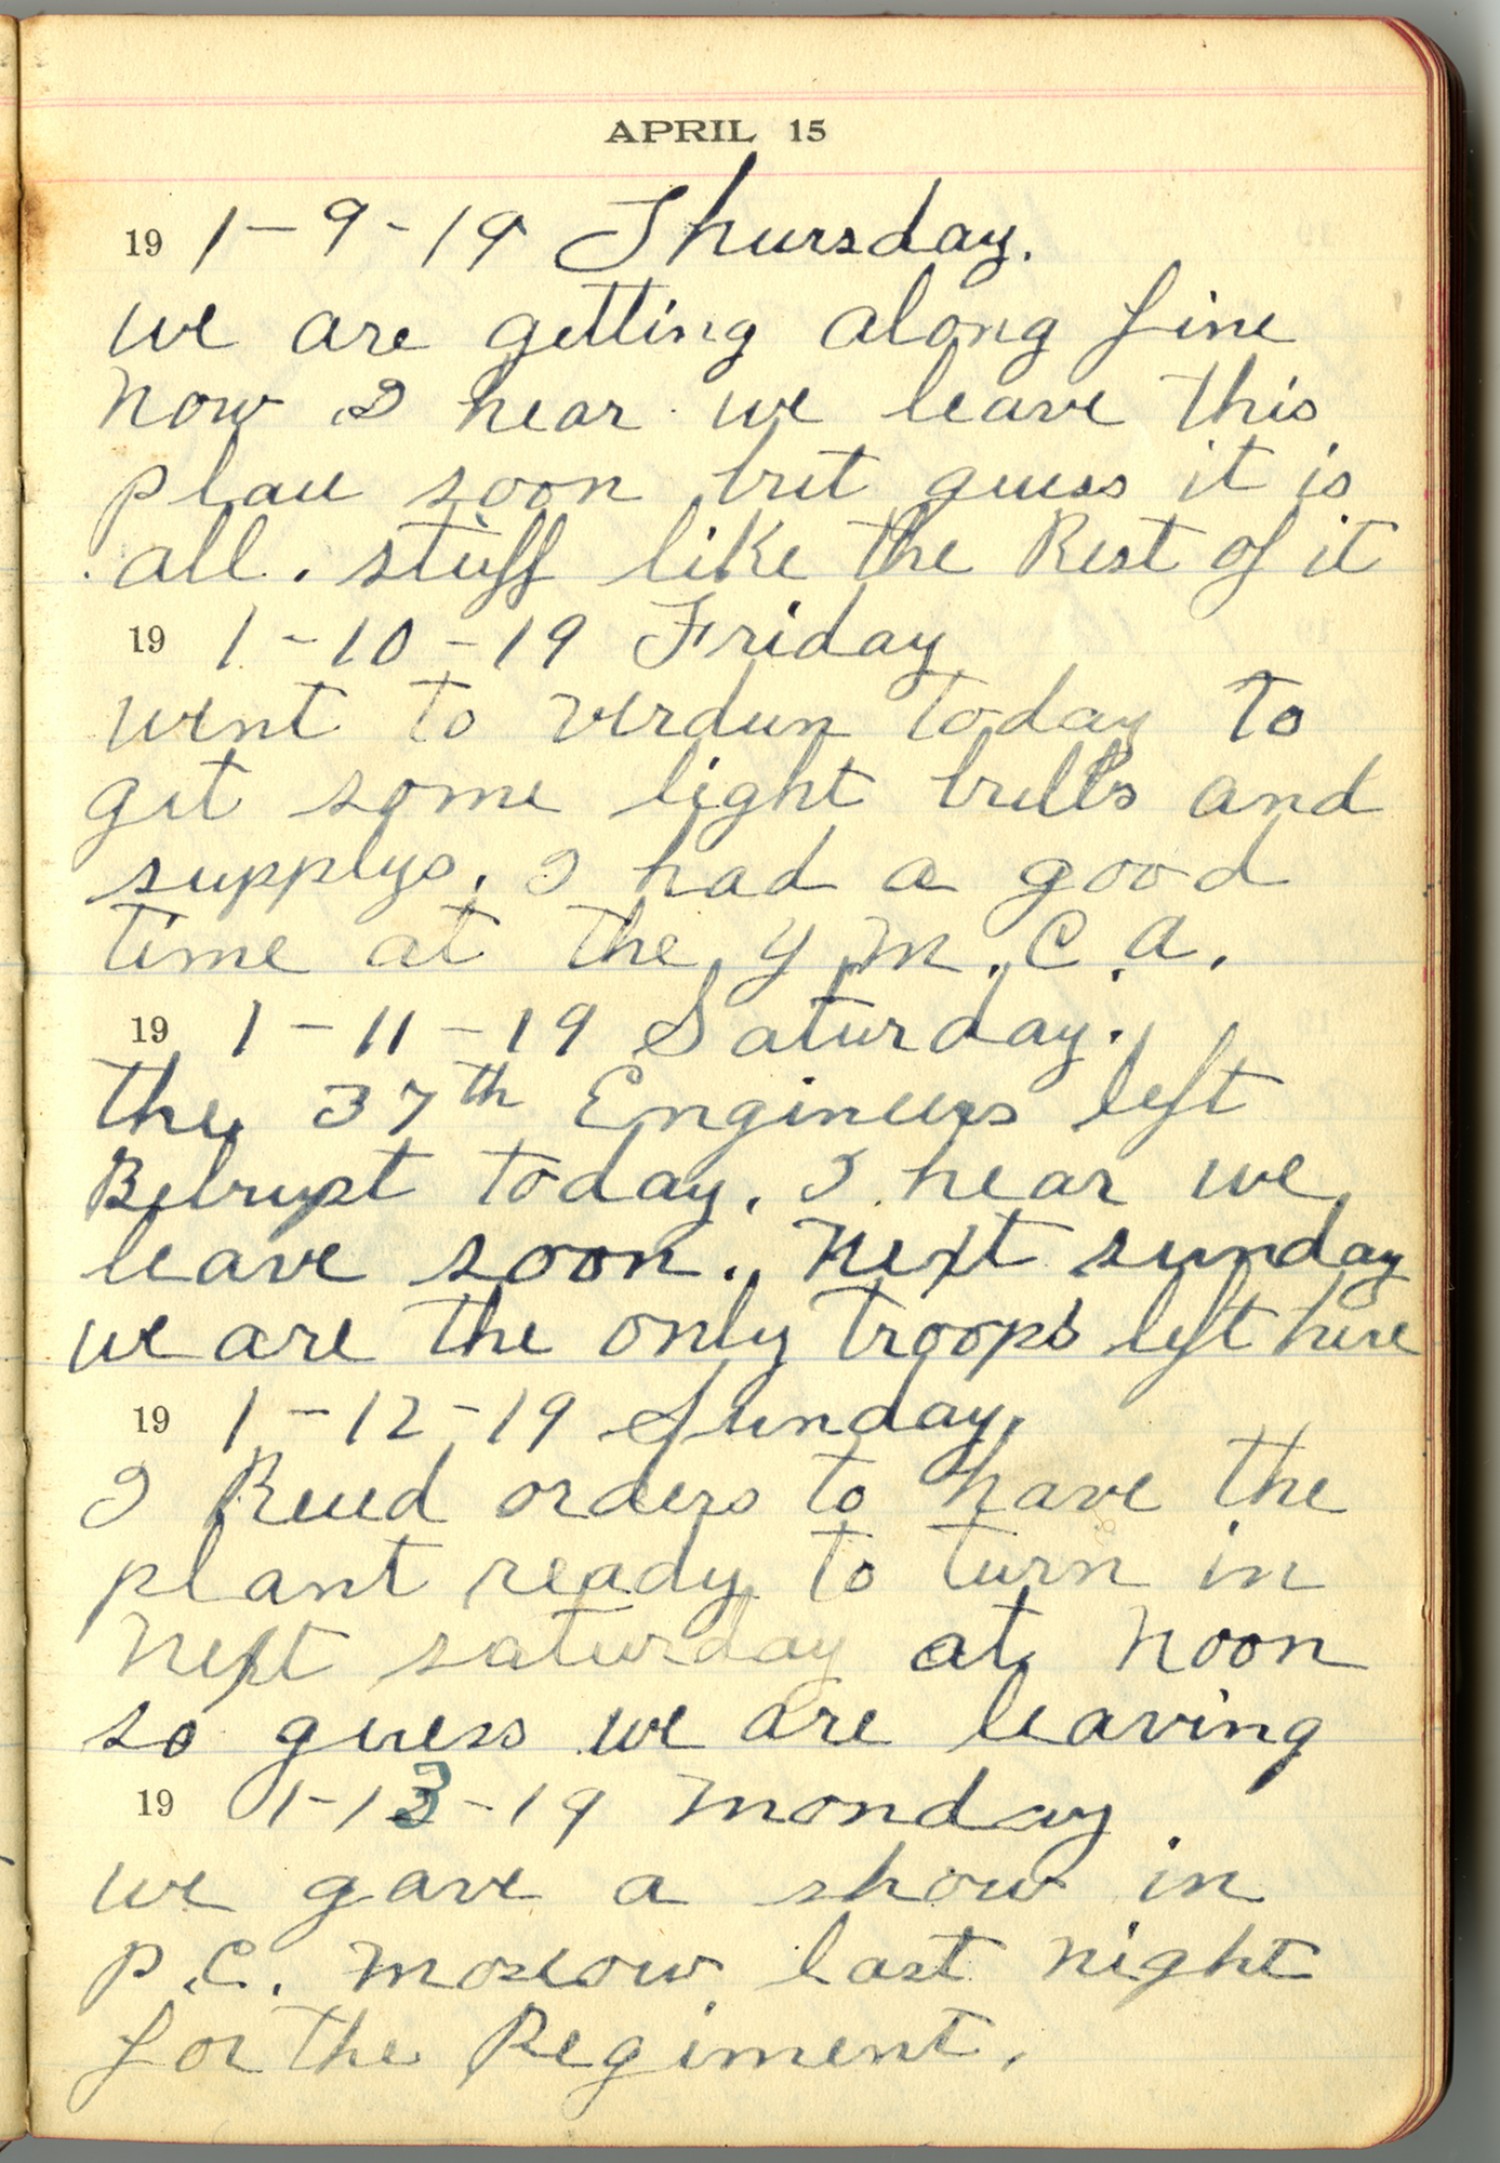 APRIL 15
19 1-9-19 Thursday.
we are getting along fine
now I hear we leave this
place soon but guess it is
all. stuff like the Rest of it
19 1-10-19 Friday
went to verdun today to
get some light bulbs and
supplys. I had a good
time at the Y.M.C.A.
19 1-11-19 Saturday.
the 37th Engineers left
Belrupt today. I hear we
leave soon. Next sunday
we are the only troops left here
19 1-12-19 Sunday,
I Recd orders to have the
plant ready to turn in
Next saturday at Noon
so guess we are leaving
19 1-13-19 Monday
we gave a show in
P.C. Moscow last night
for the Regiment.